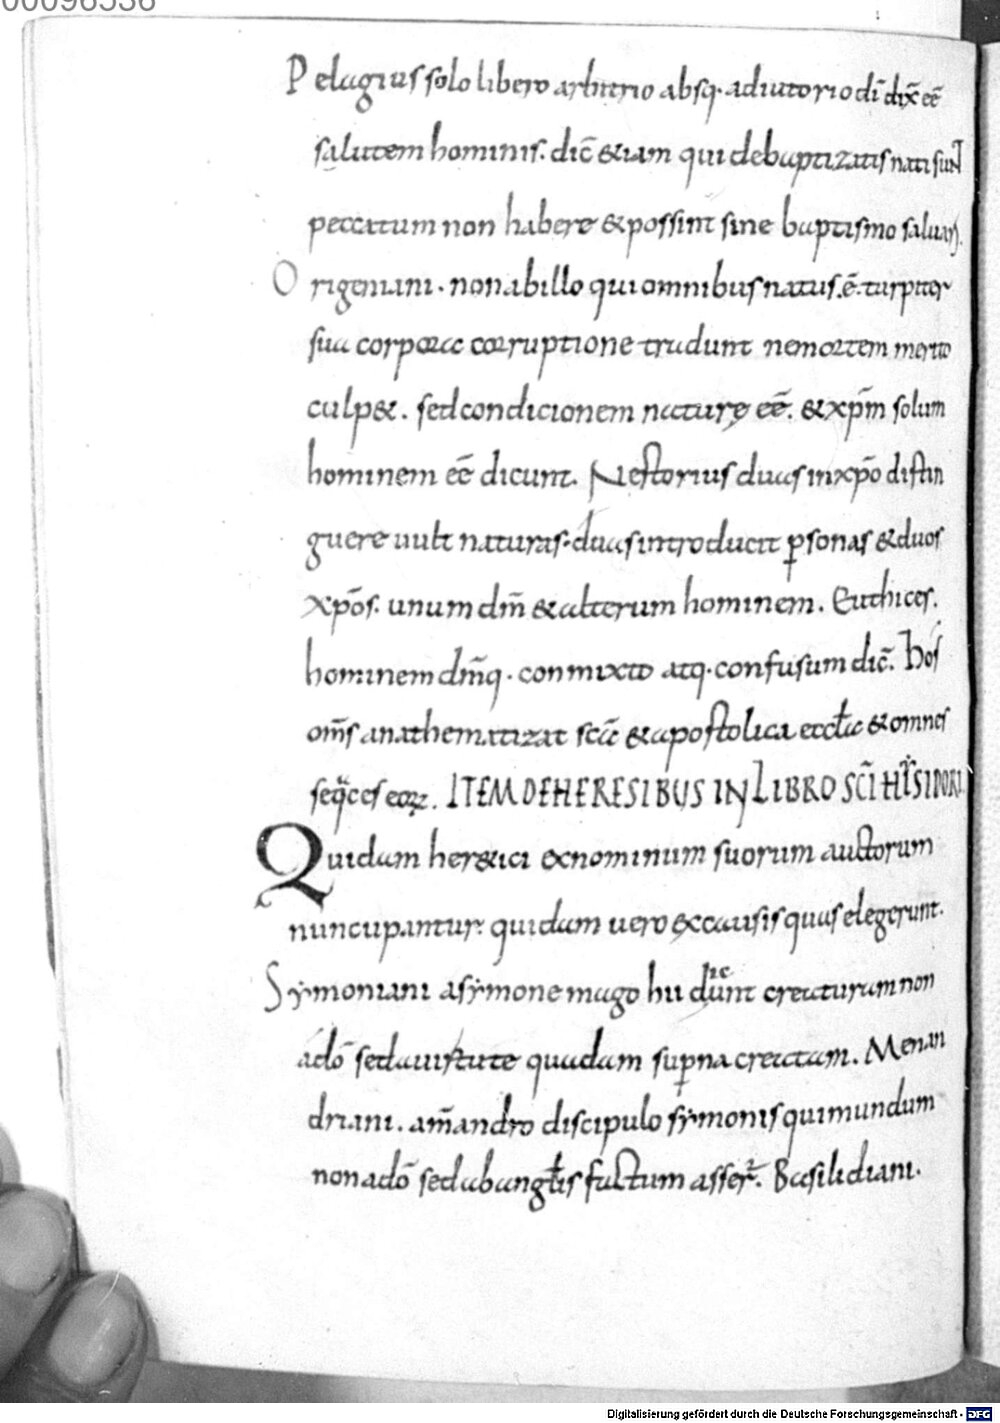 00096536
Pelagius solo libero arbitrio absq· adiutorio dī dix̄ eē
salutem hominis. dic̄ &iam qui debaptizatis nati sunt
peccatum non habere & possint sine baptismo saluari.
Origeniani. non ab illo qui omnibus natus .ē. turpiter
sua corpora corruptione tradunt ne mortem merito
culp&. sed condicionem naturę eē. & xp̄m solum
hominem eē dicunt. Nestorius duas in xp̄o distin
guere uult naturas. duas introducit p̱sonas & duos
xp̄os. unum dm̄ & alterum hominem. Euthices.
hominem dm̄q· conmixto atq· confusum dic̄. Hos
om̄s anathematizat sc̄a & apostolica eccl̄a & omnes
seq̄ces eoꝝ. ITEM DE HERESIBUS IN LIBRO SC̄I HISIDORI
Quidam her&ici ex nominum suorum auctorum
nuncupantur. quidam uero ex causis quas elegerunt.
Symoniani a symone mago hii dicunt creaturam non
a dō sed a uirtute quadam sup̱na creatam. Menan
driani. a m̄andro discipulo symonis qui mundum
non a dō sed ab angl̄is factum asser̄. Basilidiani.
Digitalisierung gefördert durch die Deutsche Forschungsgemeinschaft - DFG